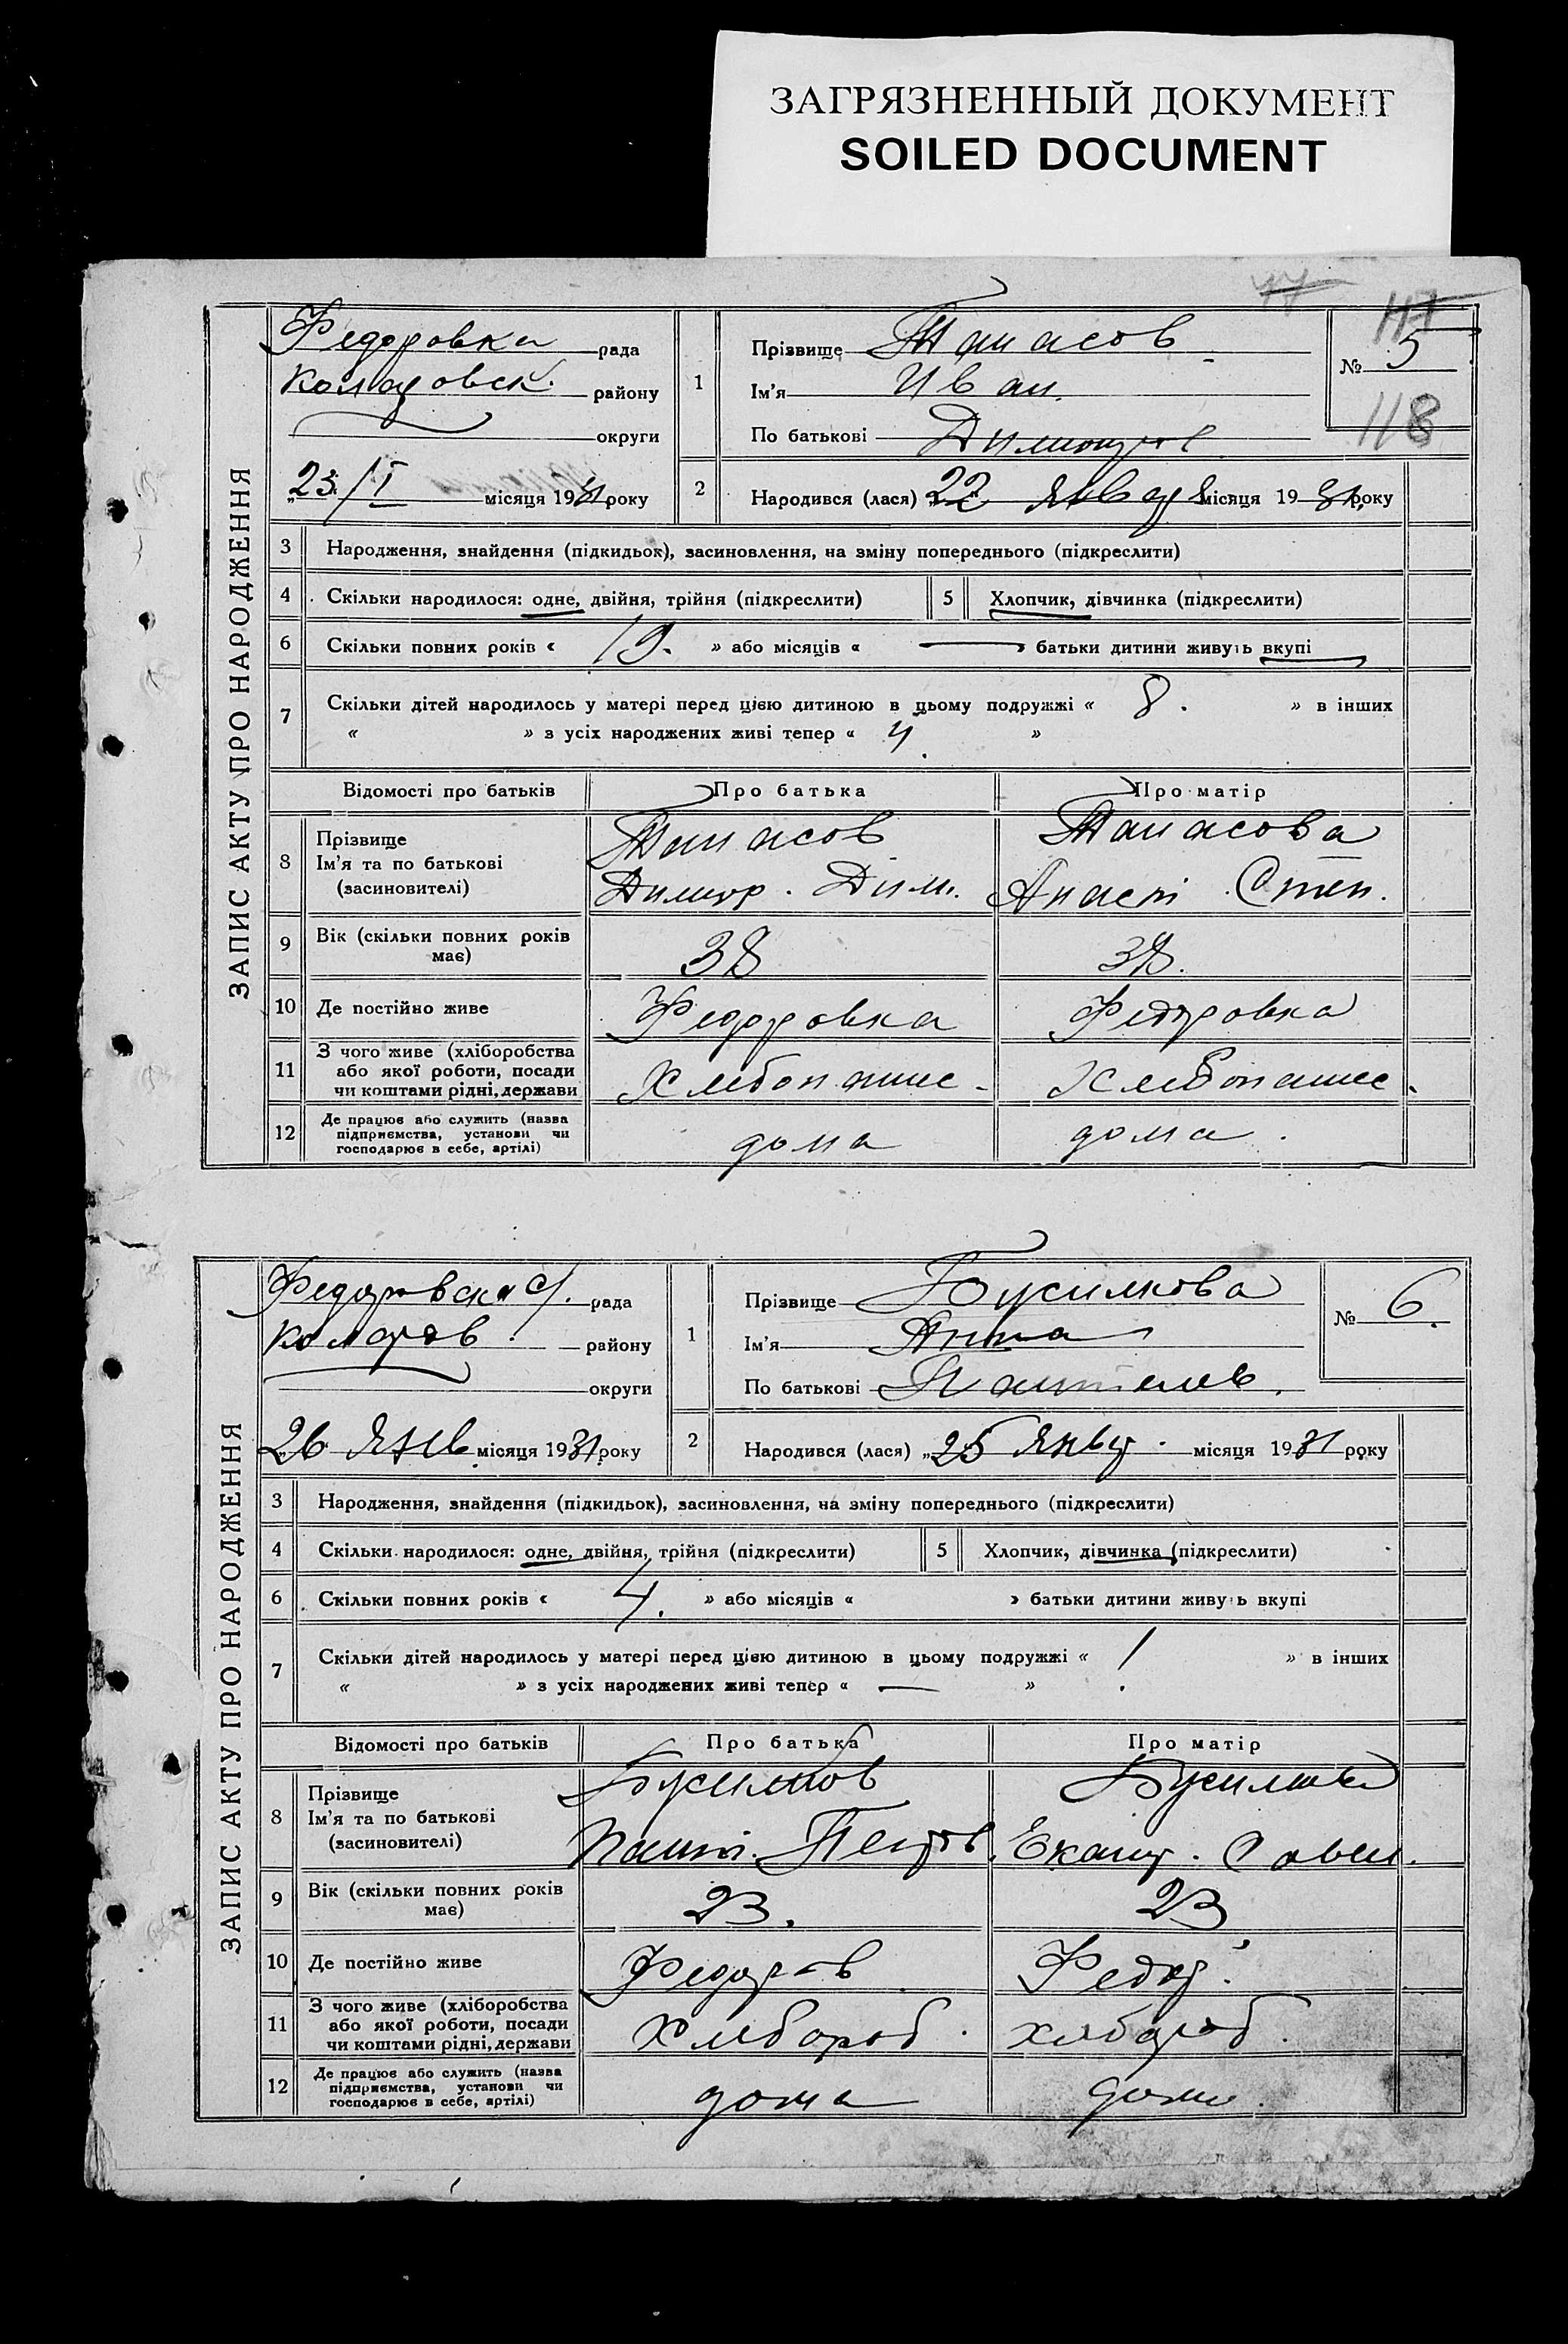 ЗАГРЯЗНЕННЫЙ ДОКУМЕНТ
SOILED DOCUMENT
77
117
118
ЗАПИС АКТУ ПРО НАРОДЖЕННЯ
Федоровка рада
района
округи
23/I місяця 1931 року
1 Прізвище Танасов
Ім'я Иван.
По батькові Димитров
№ 5
2 Народився (лася) „22 января місяця 1931 року
3 Народження, знайдення (підкидьок), засиновлення, на зміну попереднього (підкреслити)
4 Скільки народилося: одне, двійня, трійня (підкреслити) 5 Хлопчик, дівчинка (підкреслити)
6 Скільки повних років « 19. » або місяців « — » батьки дитини живуть вкупі
7 Скільки дітей народилось у матері перед цією дитиною в цьому подружжі « 8. » в інших
« » з усіх народжених живі тепер « 4. »
Відомості про батьків Про батька Про матір
8 Прізвище Танасов Танасова
Ім'я та по батькові
(засиновителі) Димитр. Дим. Анаст. Степ.
9 Вік (скільки повних років має) 38 38.
10 Де постійно живе Федоровка Федоровка
11 З чого живе (хліборобства
або якої роботи, посади
чи коштами рідні, держави Хлебопашес. Хлебопашес.
12 Де працює або служить (назва
підприємства, установи чи
господарює в себе, артілі) дома дома.
ЗАПИС АКТУ ПРО НАРОДЖЕННЯ
рада
району
округи
26 Янв. місяця 1931 року
1 Прізвище Бужилкова
Ім'я Анна
По батькові Пантелев.
№ 6.
2 Народився (лася) „25 Янвр. місяця 1931 року
3 Народження, знайдення (підкидьок), засиновлення, на зміну попереднього (підкреслити)
4 Скільки народилося: одне, двійня, трійня (підкреслити) 5 Хлопчик, дівчинка (підкреслити)
6 Скільки повних років « 4. » або місяців « » батьки дитини живуть вкупі
7 Скільки дітей народилось у матері перед цією дитиною в цьому подружжі « 1 » в інших
« » з усіх народжених живі тепер « — »
Відомості про батьків Про батька Про матір
8 Прізвище Бужилков
Ім'я та по батькові
(засиновителі) Пант. Петров. Екатр. Савел.
9 Вік (скільки повних років має) 23. 23
10 Де постійно живе Федоров Федор.
11 З чого живе (хліборобства
або якої роботи, посади
чи коштами рідні, держави Хлебороб. хлебороб.
12 Де працює або служить (назва
підприємства, установи чи
господарює в себе, артілі) дома дома.